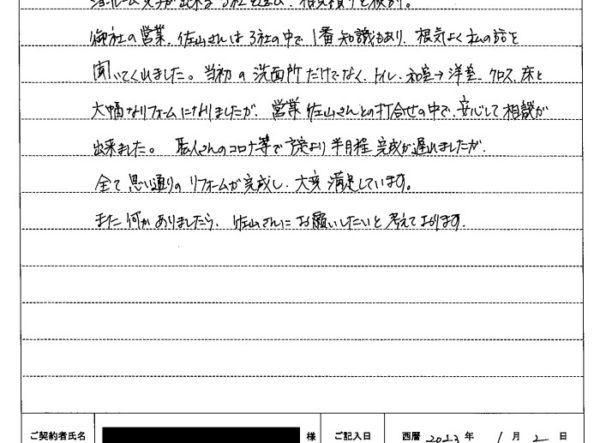 御社の営業、佐山さんは3社の中で1番知識もあり、根気よく私の話を
聞いてくれました。当初の洗面所だけでなく、トイレ、和室→洋室、クロス、床と
大幅なリフォームになりましたが、営業佐山さんとの打合せの中で、安心して相談が
出来ました。職人さんのコロナ等で予定より半月程完成が遅れましたが、
全て思い通りのリフォームが完成し、大変満足しています。
また何かありましたら、佐山さんにお願いしたいと考えております。
ご契約者氏名 様 ご記入日 西暦 2023年 1月 2日